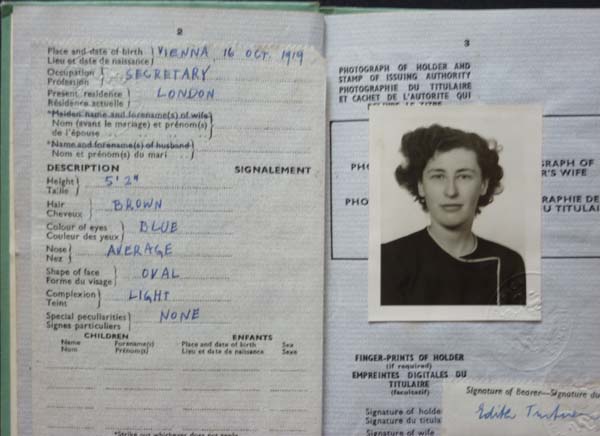 2
Place and date of birth } VIENNA, 16 OCT. 1919
Lieu et date de naissance
Occupation } SECRETARY
Profession
Present residence } LONDON
Résidence actuelle
*Maiden name and forename(s) of wife
Nom (avant le mariage) et prénom(s)
de l'épouse
*Name and forename(s) of husband
Nom et prénom(s) du mari
DESCRIPTION SIGNALEMENT
Height } 5' 2"
Taille
Hair } BROWN
Cheveux
Colour of eyes } BLUE
Couleur des yeux
Nose } AVERAGE
Nez
Shape of face } OVAL
Forme du visage
Complexion } LIGHT
Teint
Special peculiarities } NONE
Signes particuliers
CHILDREN ENFANTS
Name Forename(s) Place and date of birth Sex
Nom Prénom(s) Lieu et date de naissance Sexe
*Strike out whichever does not apply
3
PHOTOGRAPH OF HOLDER AND
STAMP OF ISSUING AUTHORITY
PHOTOGRAPHIE DU TITULAIRE
ET CACHET DE L'AUTORITE QUI
DELIVRE LE TITRE
PHO GRAPH OF
R'S WIFE
PHO APHIE DE
DU TITULAI
FINGER-PRINTS OF HOLDER
(if required)
EMPREINTES DIGITALES DU
TITULAIRE
(facultatif)
Signature of Bearer—Signature du
Signature of holde
Signature du titula
Edith
Signature of wife